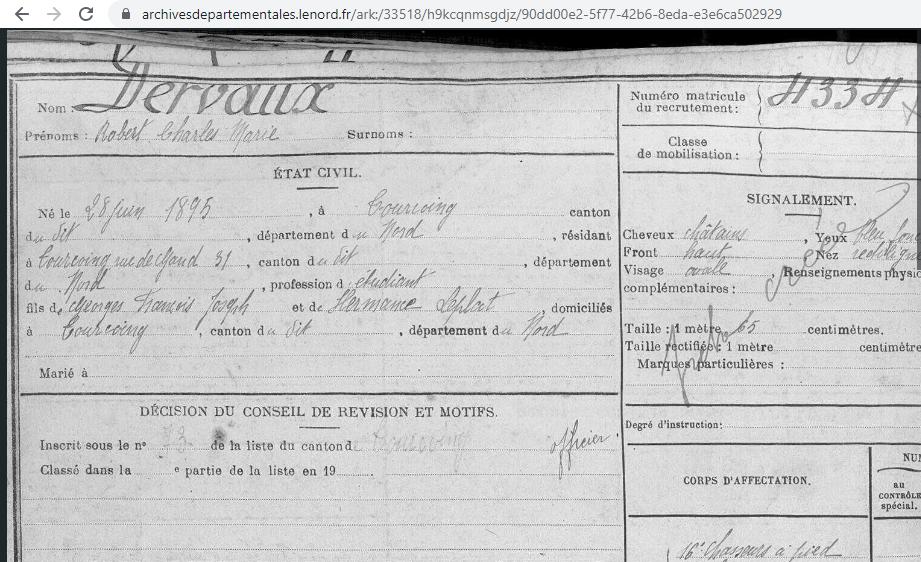 archivesdepartementales.lenord.fr/ark:/33518/h9kcqnmsgdjz/90dd00e2-5f77-42b6-8eda-e3e6ca502929
Nom : Dervaux
Prénoms : Robert Charles Marie Surnoms :
ÉTAT CIVIL.
Né le 28 juin 1895, à Tourcoing canton
du dit, département du Nord, résidant
à Tourcoing rue de Gand 31, canton du dit, département
du Nord, profession d'étudiant
fils de Georges François Joseph et de Hermance Leplat domiciliés
à Tourcoing, canton du dit, département du Nord
Marié à
DÉCISION DU CONSEIL DE REVISION ET MOTIFS.
Inscrit sous le n° 73 de la liste du canton de Tourcoing officier.
Classé dans la e partie de la liste en 19
Numéro matricule
du recrutement : 4334
Classe
de mobilisation :
SIGNALEMENT.
Cheveux châtains, Yeux bleu
Front haut, Nez
Visage ovale, Renseignements physio
complémentaires :
Taille : 1 mètre 65 centimètres.
Taille rectifiée : 1 mètre centimètre
Marques particulières :
Degré d'instruction :
CORPS D'AFFECTATION.
NU
au
CONTRÔLE
spécial.
16e Chasseurs à pied